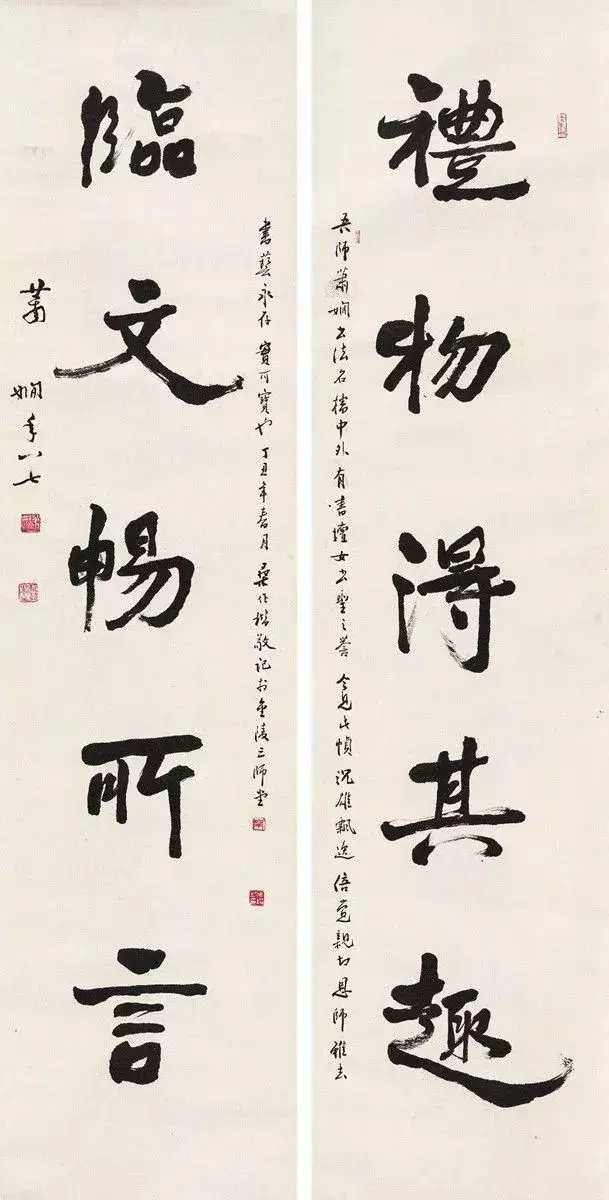 禮物得其趣
吾師蕭嫻書法名播中外有書壇女書聖之誉今見此幀沉雄飄逸倍覺親切恩師雖去
書藝永存寶可寶也丁丑年春月桑作楷敬記於金陵三師堂
臨文暢所言
蕭嫻年八七